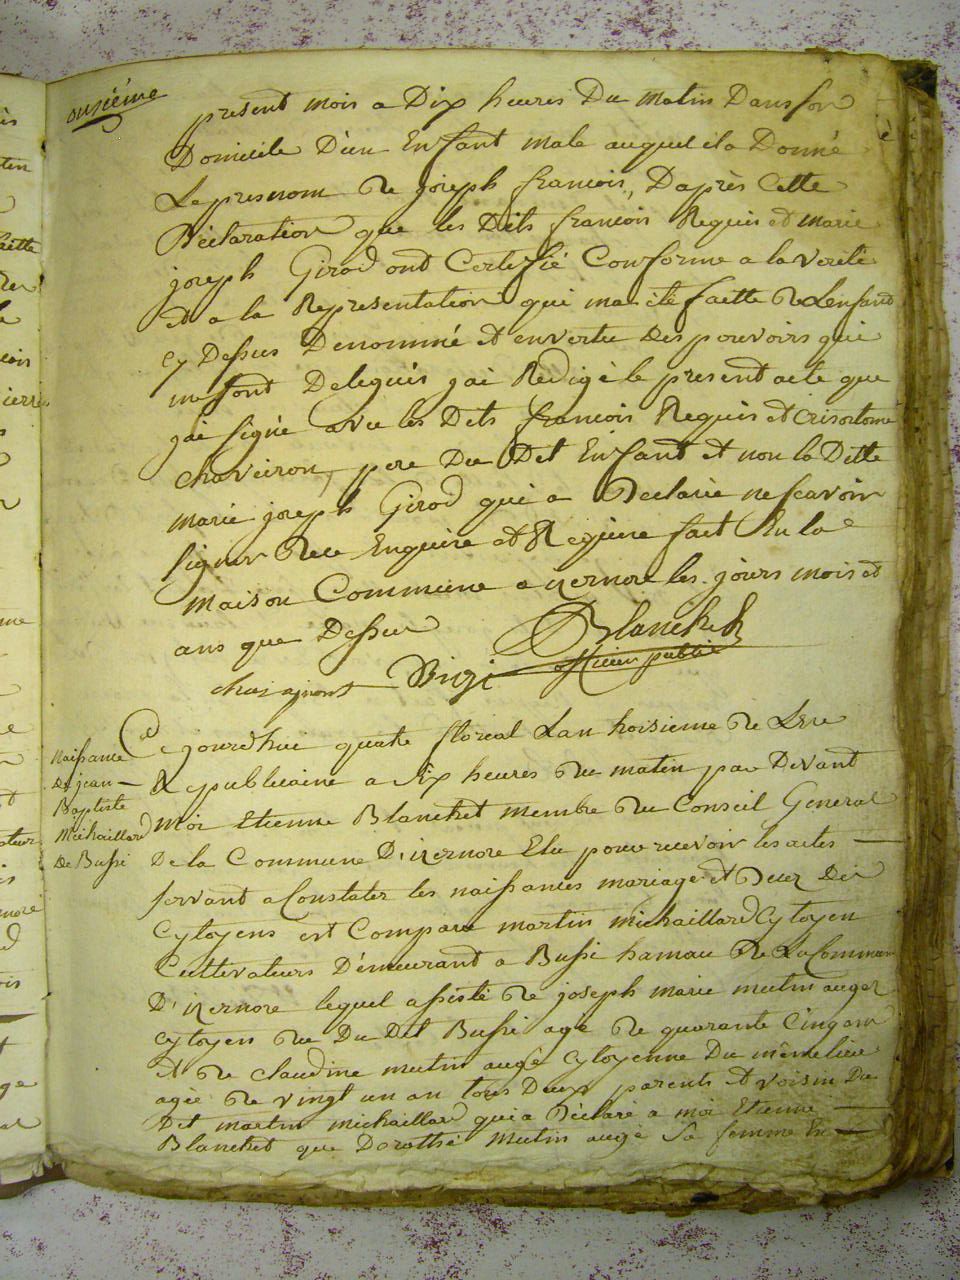 onzième
present mois a Dix heures Du Matin Dans son
Domicile D'un Enfant male auquel il a Donné
Le presnom De joseph francois, Daprès Cette
Déclaration que les Dits francois Reguis et marie
joseph Girod ont Certifié Conforme a la verité
et a la Representation qui ma eté faitte De Lenfant
Cy Dessus Denommé et en vertu Des pouvoirs qui
me sont Delegués jai Redigé le present acte que
jai signé avec les Dits francois Reguis et Crisostome
chaveiron, pere Du Dit Enfant et non la Ditte
Marie joseph Girod qui a Declaré ne scavoir
signer De ce Enquise et Requise fait En la
Maison Commune a izernore les jours mois et
ans que Dessus
Blanchet
officier public
Naissance
De jean
Baptiste
Michaillard
De Bussi
Ce jourdhui quatre floreal Lan troisieme De Lere
Republicaine a Six heures du matin par Devant
Moi Etienne Blanchet membre du Conseil General
De la Commune D'izernore Elu pour recevoir les actes
servant a Constater les naissances mariage et Decez Des
Cytoyens est Comparu martin michaillard Cytoyen
Cultivateurs Demeurant a Bussi hamau De La Commune
D'izernore lequel assisté De joseph marie mutin auger
Cytoyen Du Dit Bussi agé De quarante Cinq ans
et De claudine mutin augé Cytoyenne Du même lieu
agée De vingt un an tous Deux parents et voisin Du
Dit martin michaillard qui a Déclaré a moi Etienne
Blanchet que Dorothé Mutin augé Sa femme En